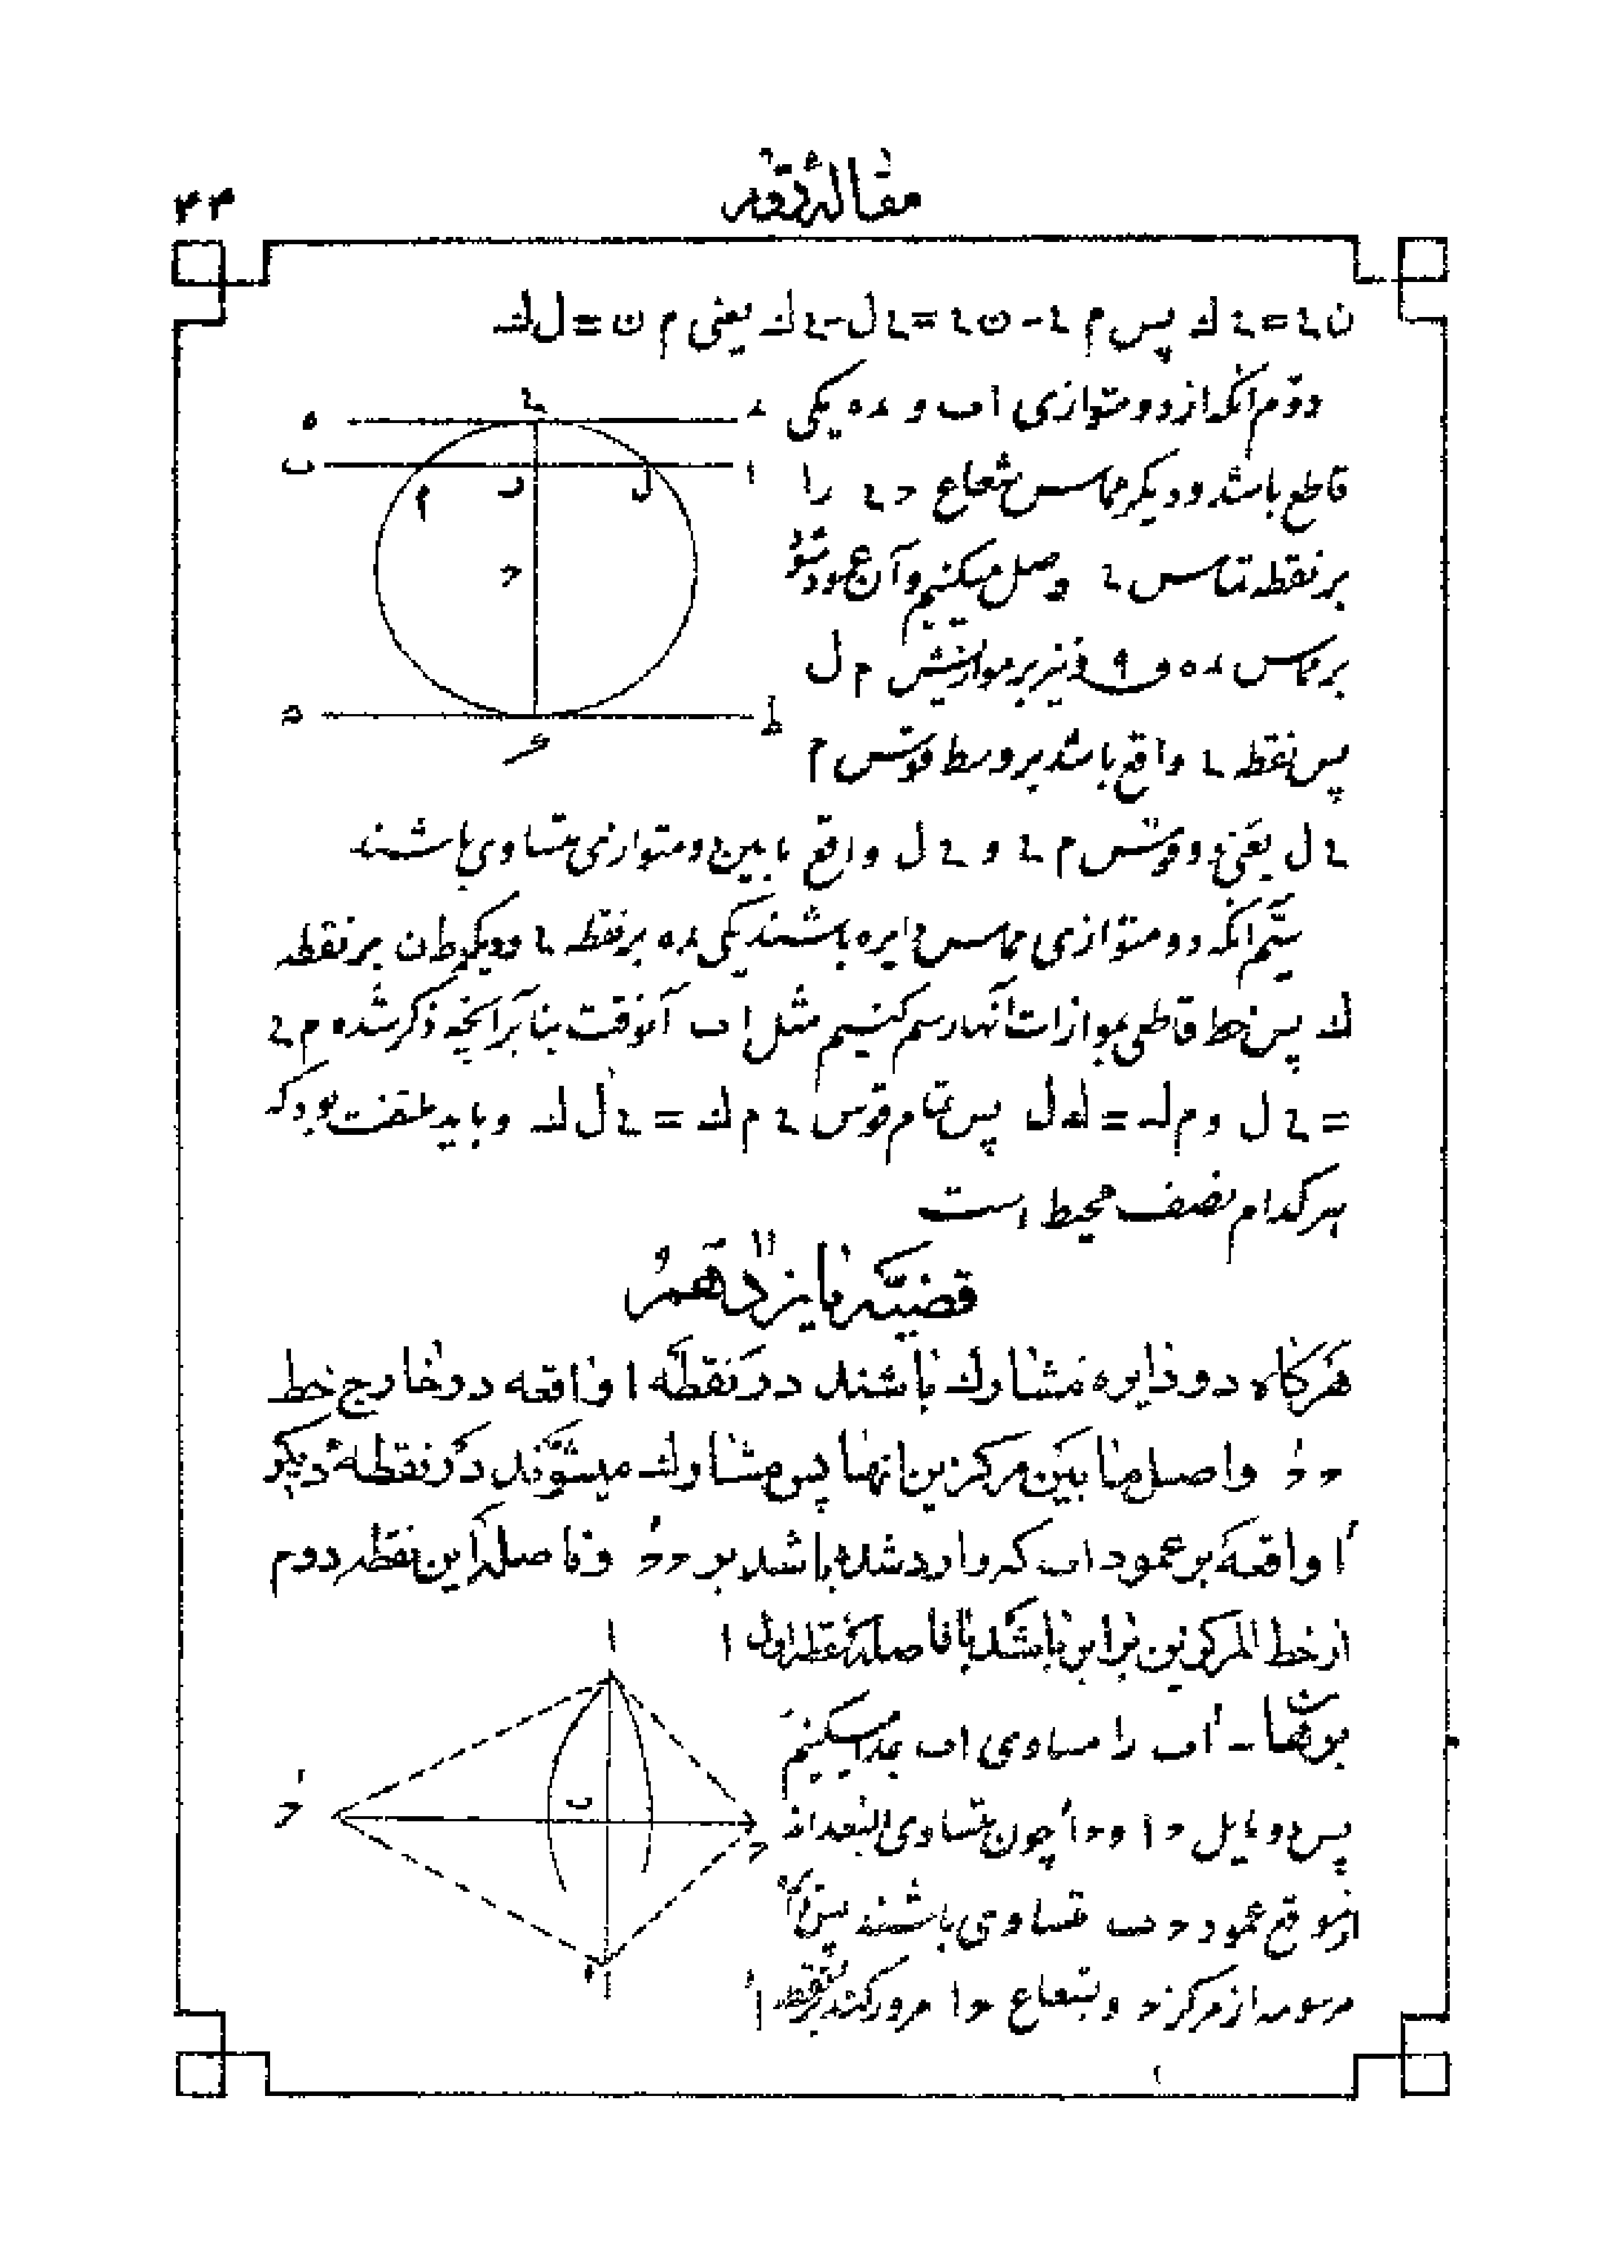 مقالهٔ دوم
۴۳
ن ح = ح ك پس م ح - ن ح = ح ل - ح ك يعنى م ن = ل ك
دوّم آنكه از دو متوازى اب و ء ه يكى
قاطع باشد و ديگر مماس شعاع حـ ح را
بر نقطه تماس ح وصل ميكنيم و آن عمود شود
بر مماس ء ه و نيز بر موازيش م ل
پس نقطه ح واقع باشد بر وسط قوس م
ح ل يعنى دو قوس م ح و ح ل واقع ما بين دو متوازى متساوى باشند
سيّم آنكه دو متوازى مماس دايره باشند يكى ء ه بر نقطه ح و ديگر ط ن بر نقطه
ك پس خط قاطعى بموازات آنها رسم كنيم مثل اب آنوقت بنا بر آنچه ذكر شده م ح
= ح ل و م ك = ك ل پس تمام قوس ح م ك = ح ل ك و بايد ملتفت بود كه
هر كدام نصف محيط است
قضيّه يازدهم
هرگاه دو دايره متشارك باشند در نقطه ا واقعه در خارج خط
حـ حـَ واصل ما بين مركزين انها پس متشارك ميشوند در نقطهٔ ديگر
اَ واقعه بر عمود اب كه وارد شده باشد بر حـ حـَ و فاصلهٔ اين نقطه دوم
از خط المركزين برابر باشد با فاصلهٔ نقطه اول ا
برهان - اَب را مساوى اب جدا ميكنيم
پس دو مايل حـ ا و حـ اَ چون متساوى البعد اند
از موقع عمود حـ ب متساوى باشند پس دايره
مرسومه از مركز حـ و بشعاع حـ ا مرور كند بر نقطه اَ
ح
ه
ء
ب
ا
م
ر
ل
حـ
ن
ط
ك
ا
حـَ
ب
حـ
اَ